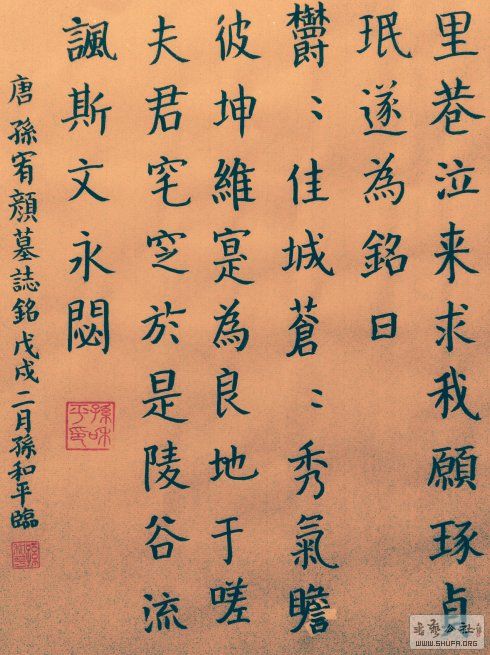 里巷泣来求我願琢貞
珉遂為銘曰
欝〻佳城蒼〻秀氣瞻
彼坤維寔為良地于嗟
夫君窀穸於是陵谷流
諷斯文永閟
唐 孫宥顔墓誌銘戊戌二月孫和平臨
孫和平印
书艺公社
WWW.SHUFA.ORG